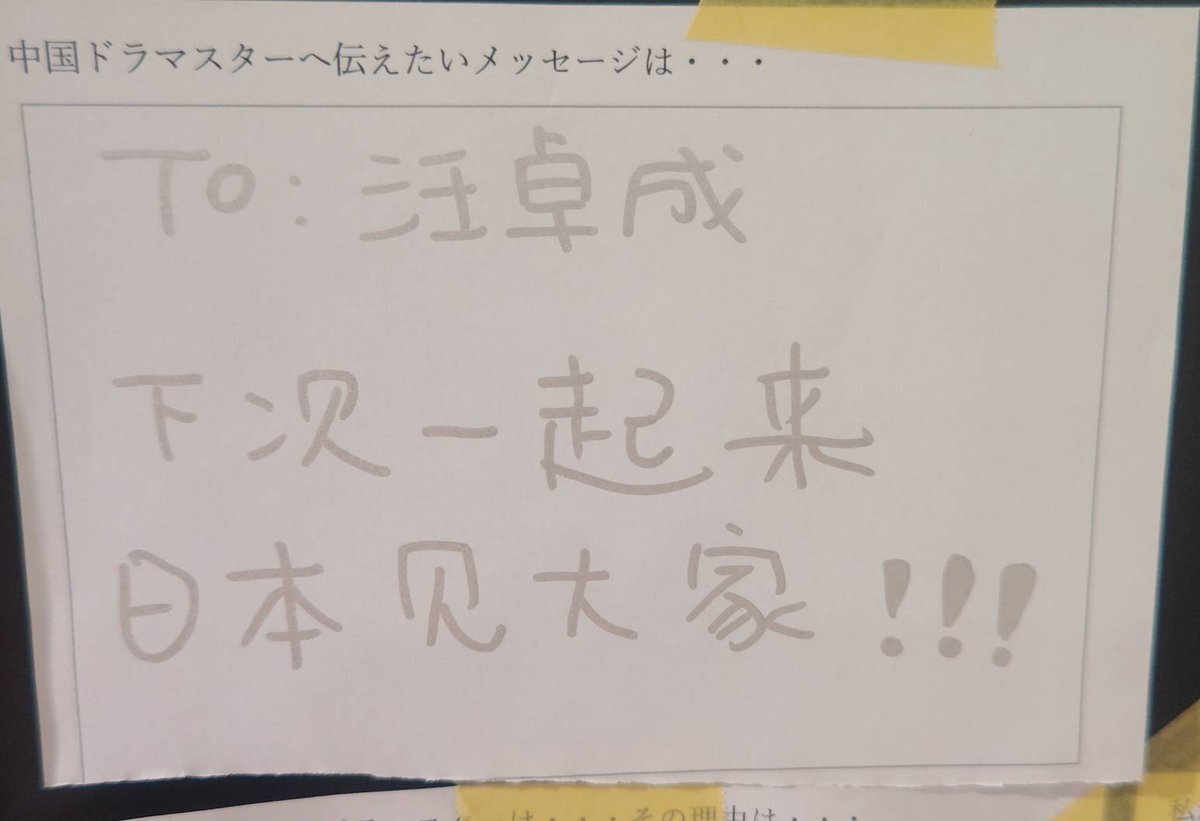 中国ドラマスターへ伝えたいメッセージは・・・
To: 汪卓成
下次一起来
日本见大家!!!
は・・・その理由は・・・
私